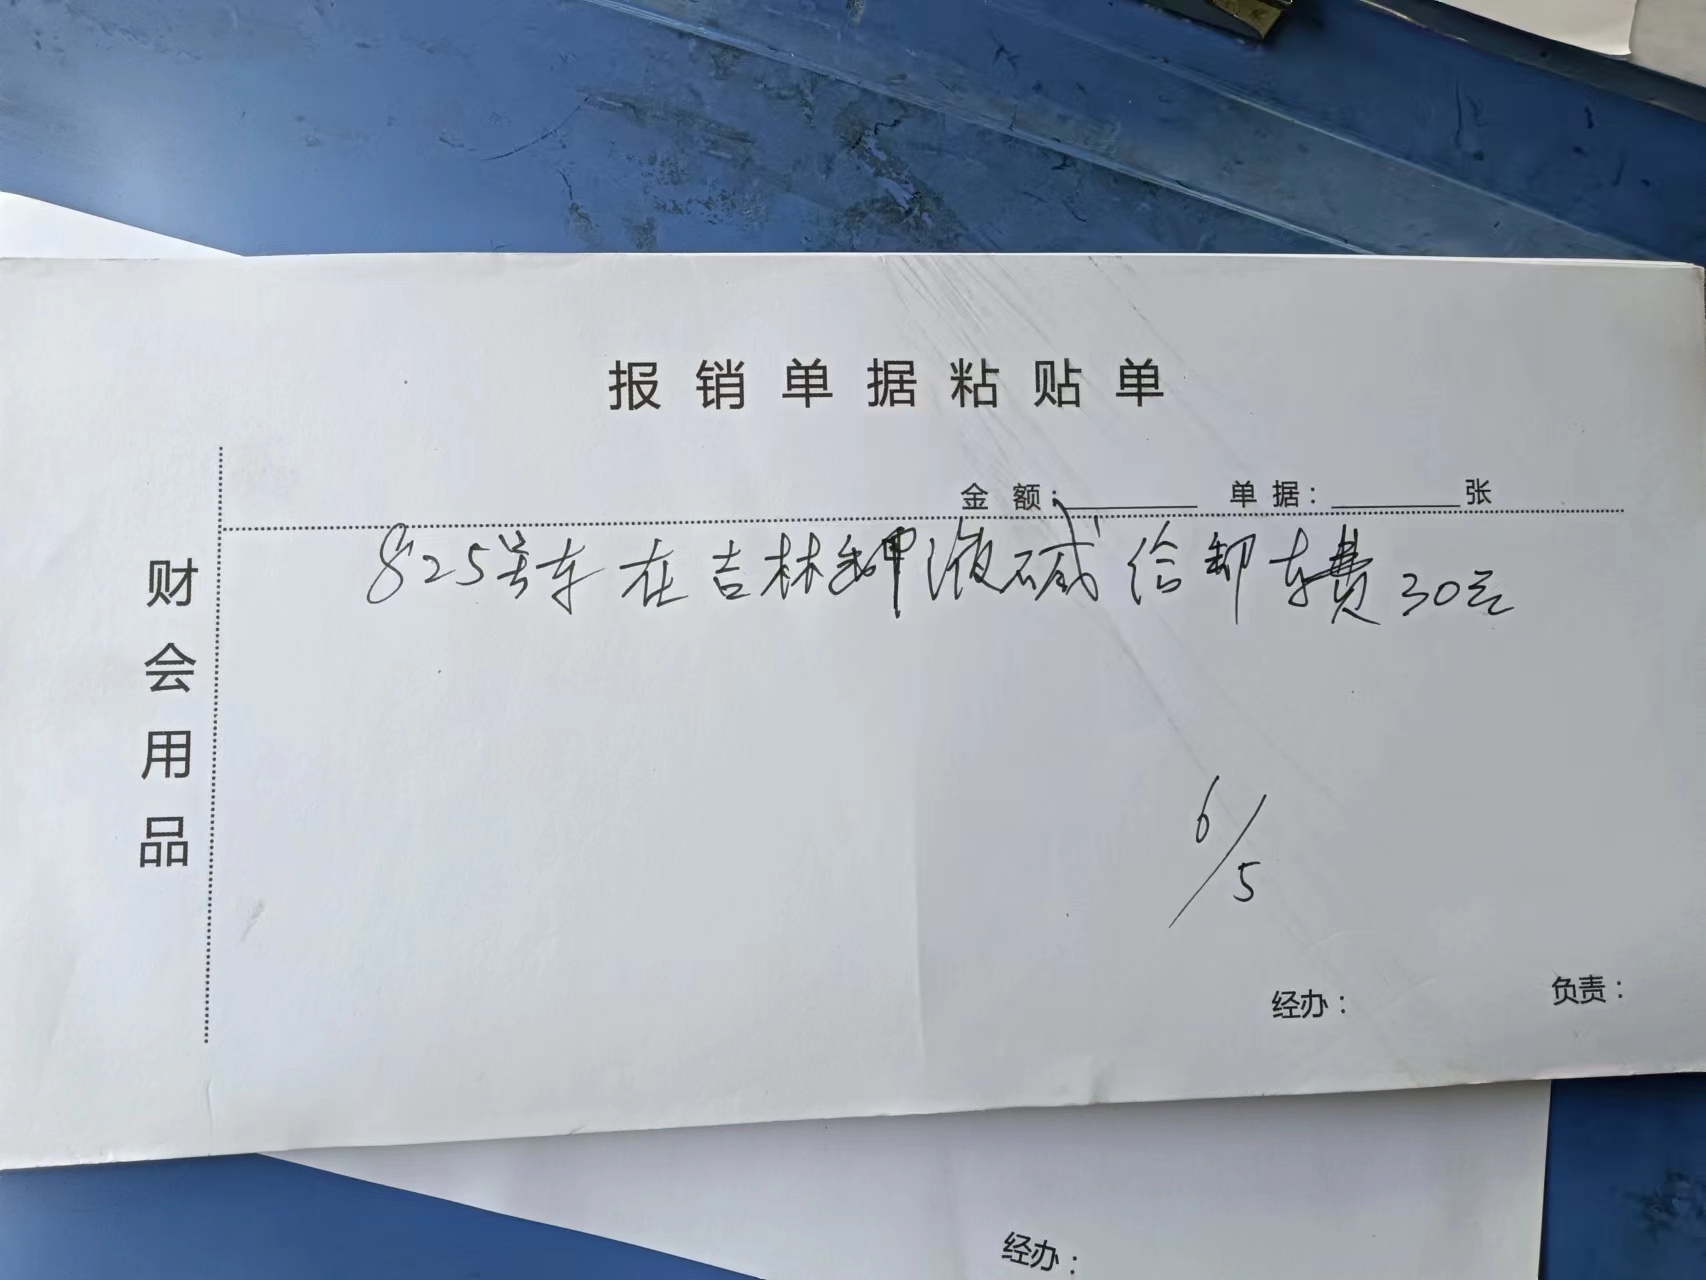 报销单据粘贴单
金额：
单据：
张
财会用品
825号车在吉林卸液碱给卸车费30元
6/5
经办：
负责：
经办：